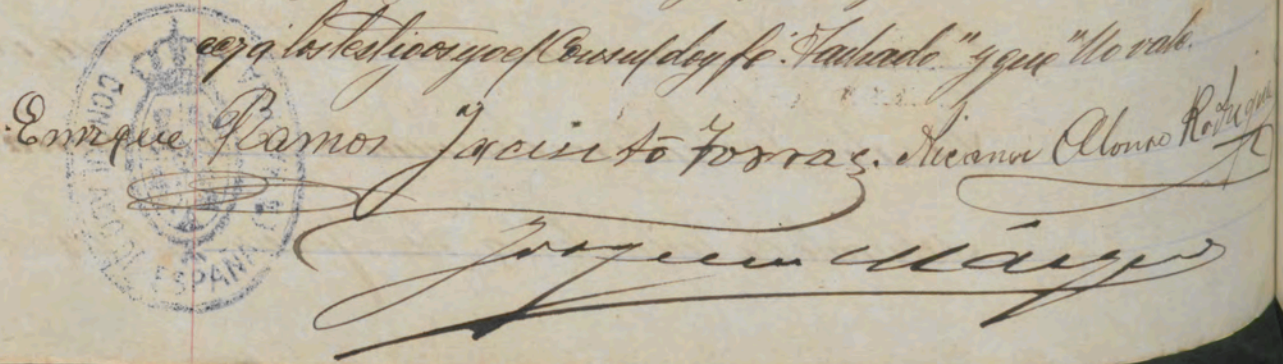 los testigos y yo el Consul doy fé. Tachado "y que" No vale.
Enrique Ramos Jacinto Torras. Nicanor Alonso Rodriguez
Joaquin Márquez
CONSULADO ESPAÑA